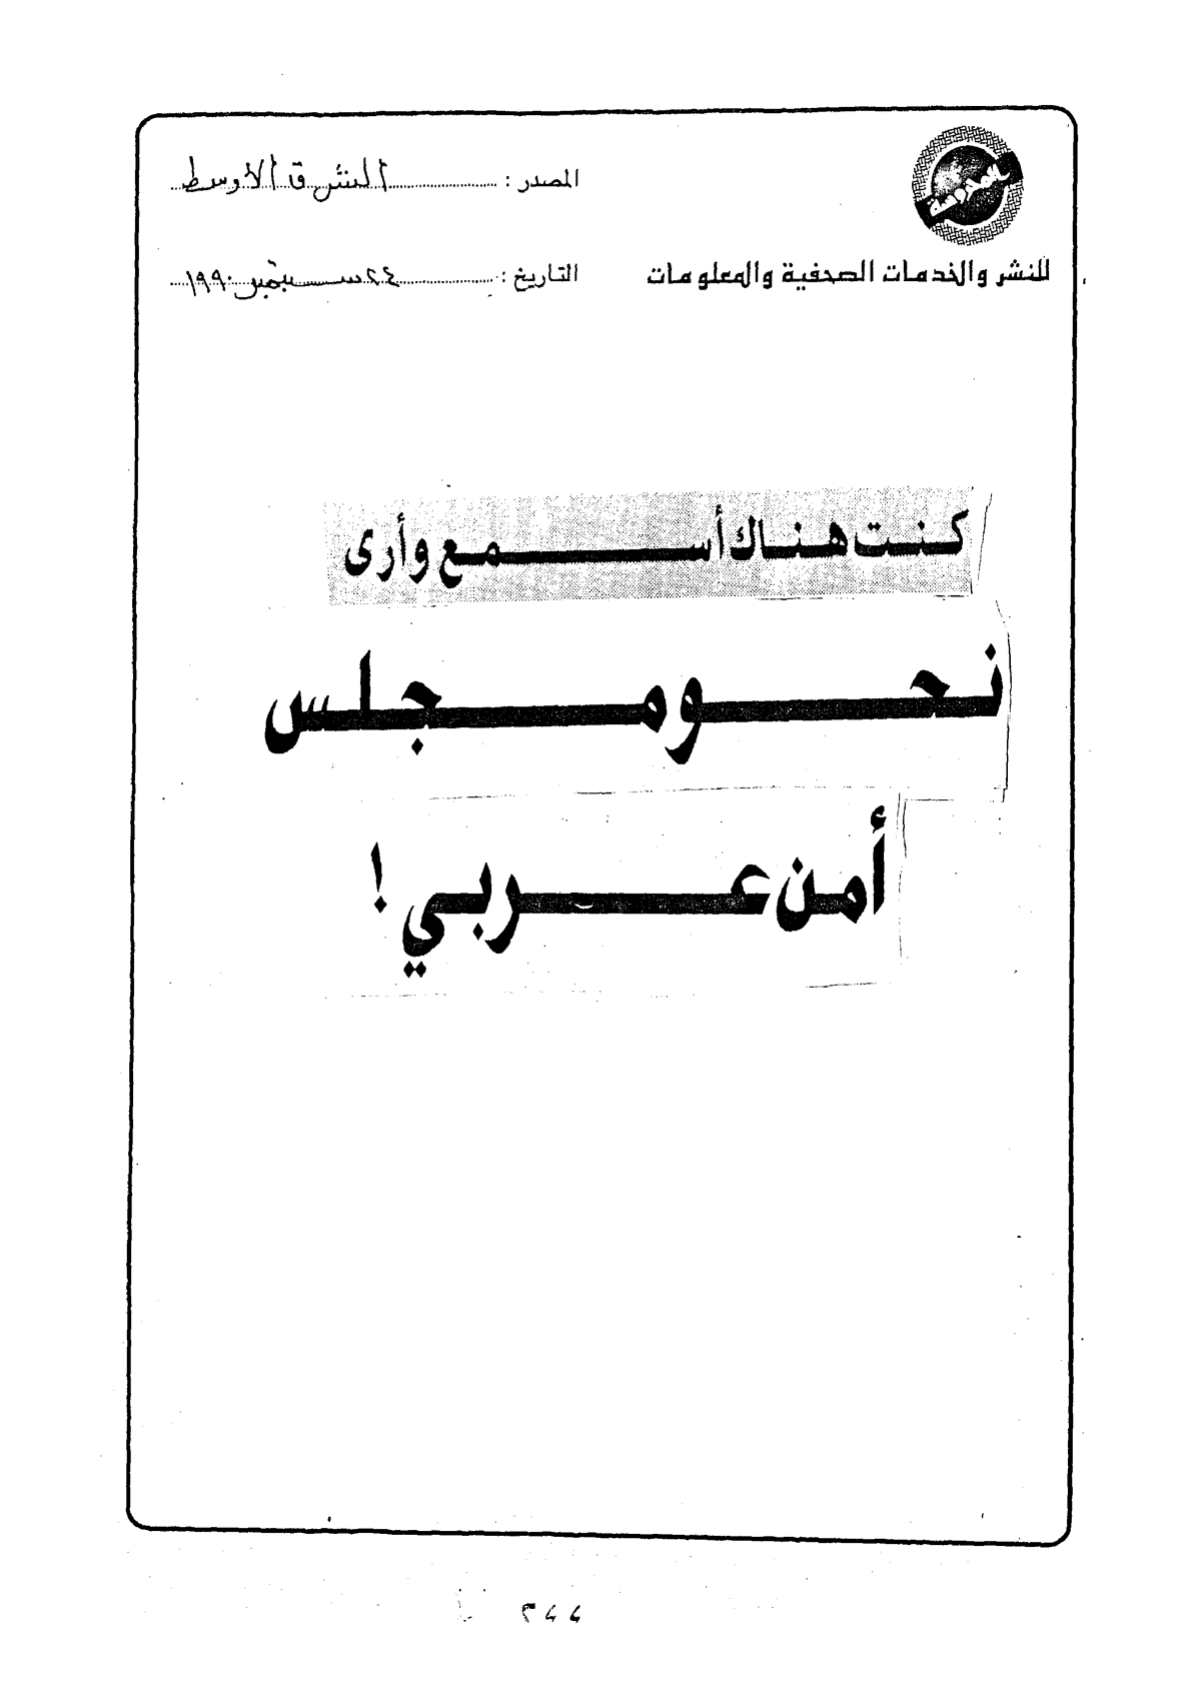 المصدر : الشرق الأوسط
للنشر والخدمات الصحفية والمعلومات
التاريخ : ٢٤ سبتمبر ١٩٩٠
كنت هناك أسمع وأرى
نحو مجلس
أمن عربي !